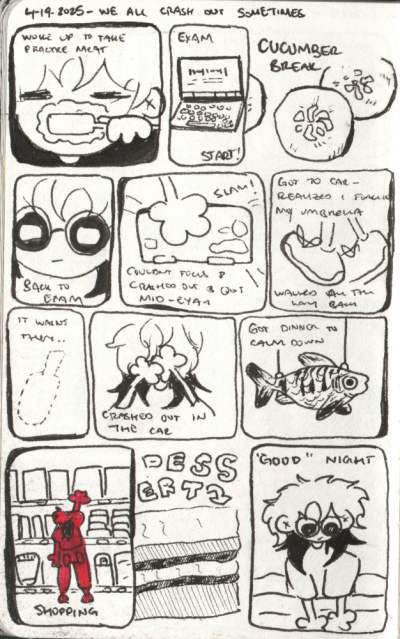 4-19-2025 - WE ALL CRASH OUT SOMETIMES
WOKE UP TO TAKE
PRACTICE MCAT
EXAM
START!
CUCUMBER
BREAK
BACK TO
EXAM
SLAM!
COULDN'T FOCUS &
CRASHED OUT & QUIT
MID-EXAM
GOT TO CAR-
REALIZED I
MY UMBRELLA
WALKED ALL THE
WAY BACK
IT WASNT
THEY..
CRASHED OUT IN
THE CAR
GOT DINNER TO
CALM DOWN
SHOPPING
DESS
ERT
"GOOD" NIGHT